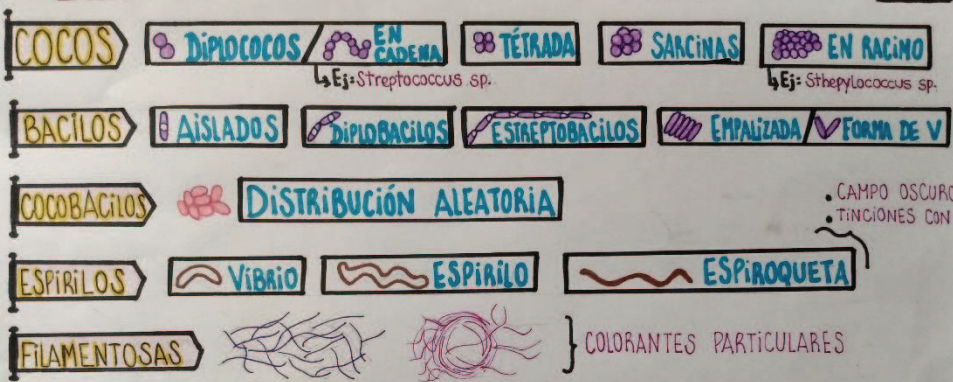 COCOS DIPLOCOCOS / EN CADENA TÉTRADA SARCINAS EN RACIMO
Ej: Streptococcus sp. Ej: Sthepylococcus sp.
BACILOS AISLADOS DIPLOBACILOS ESTREPTOBACILOS EMPALIZADA / FORMA DE V
COCOBACILOS DISTRIBUCIÓN ALEATORIA
• CAMPO OSCURO
• TINCIONES CON
ESPIRILOS VIBRIO ESPIRILO ESPIROQUETA
FILAMENTOSAS COLORANTES PARTICULARES